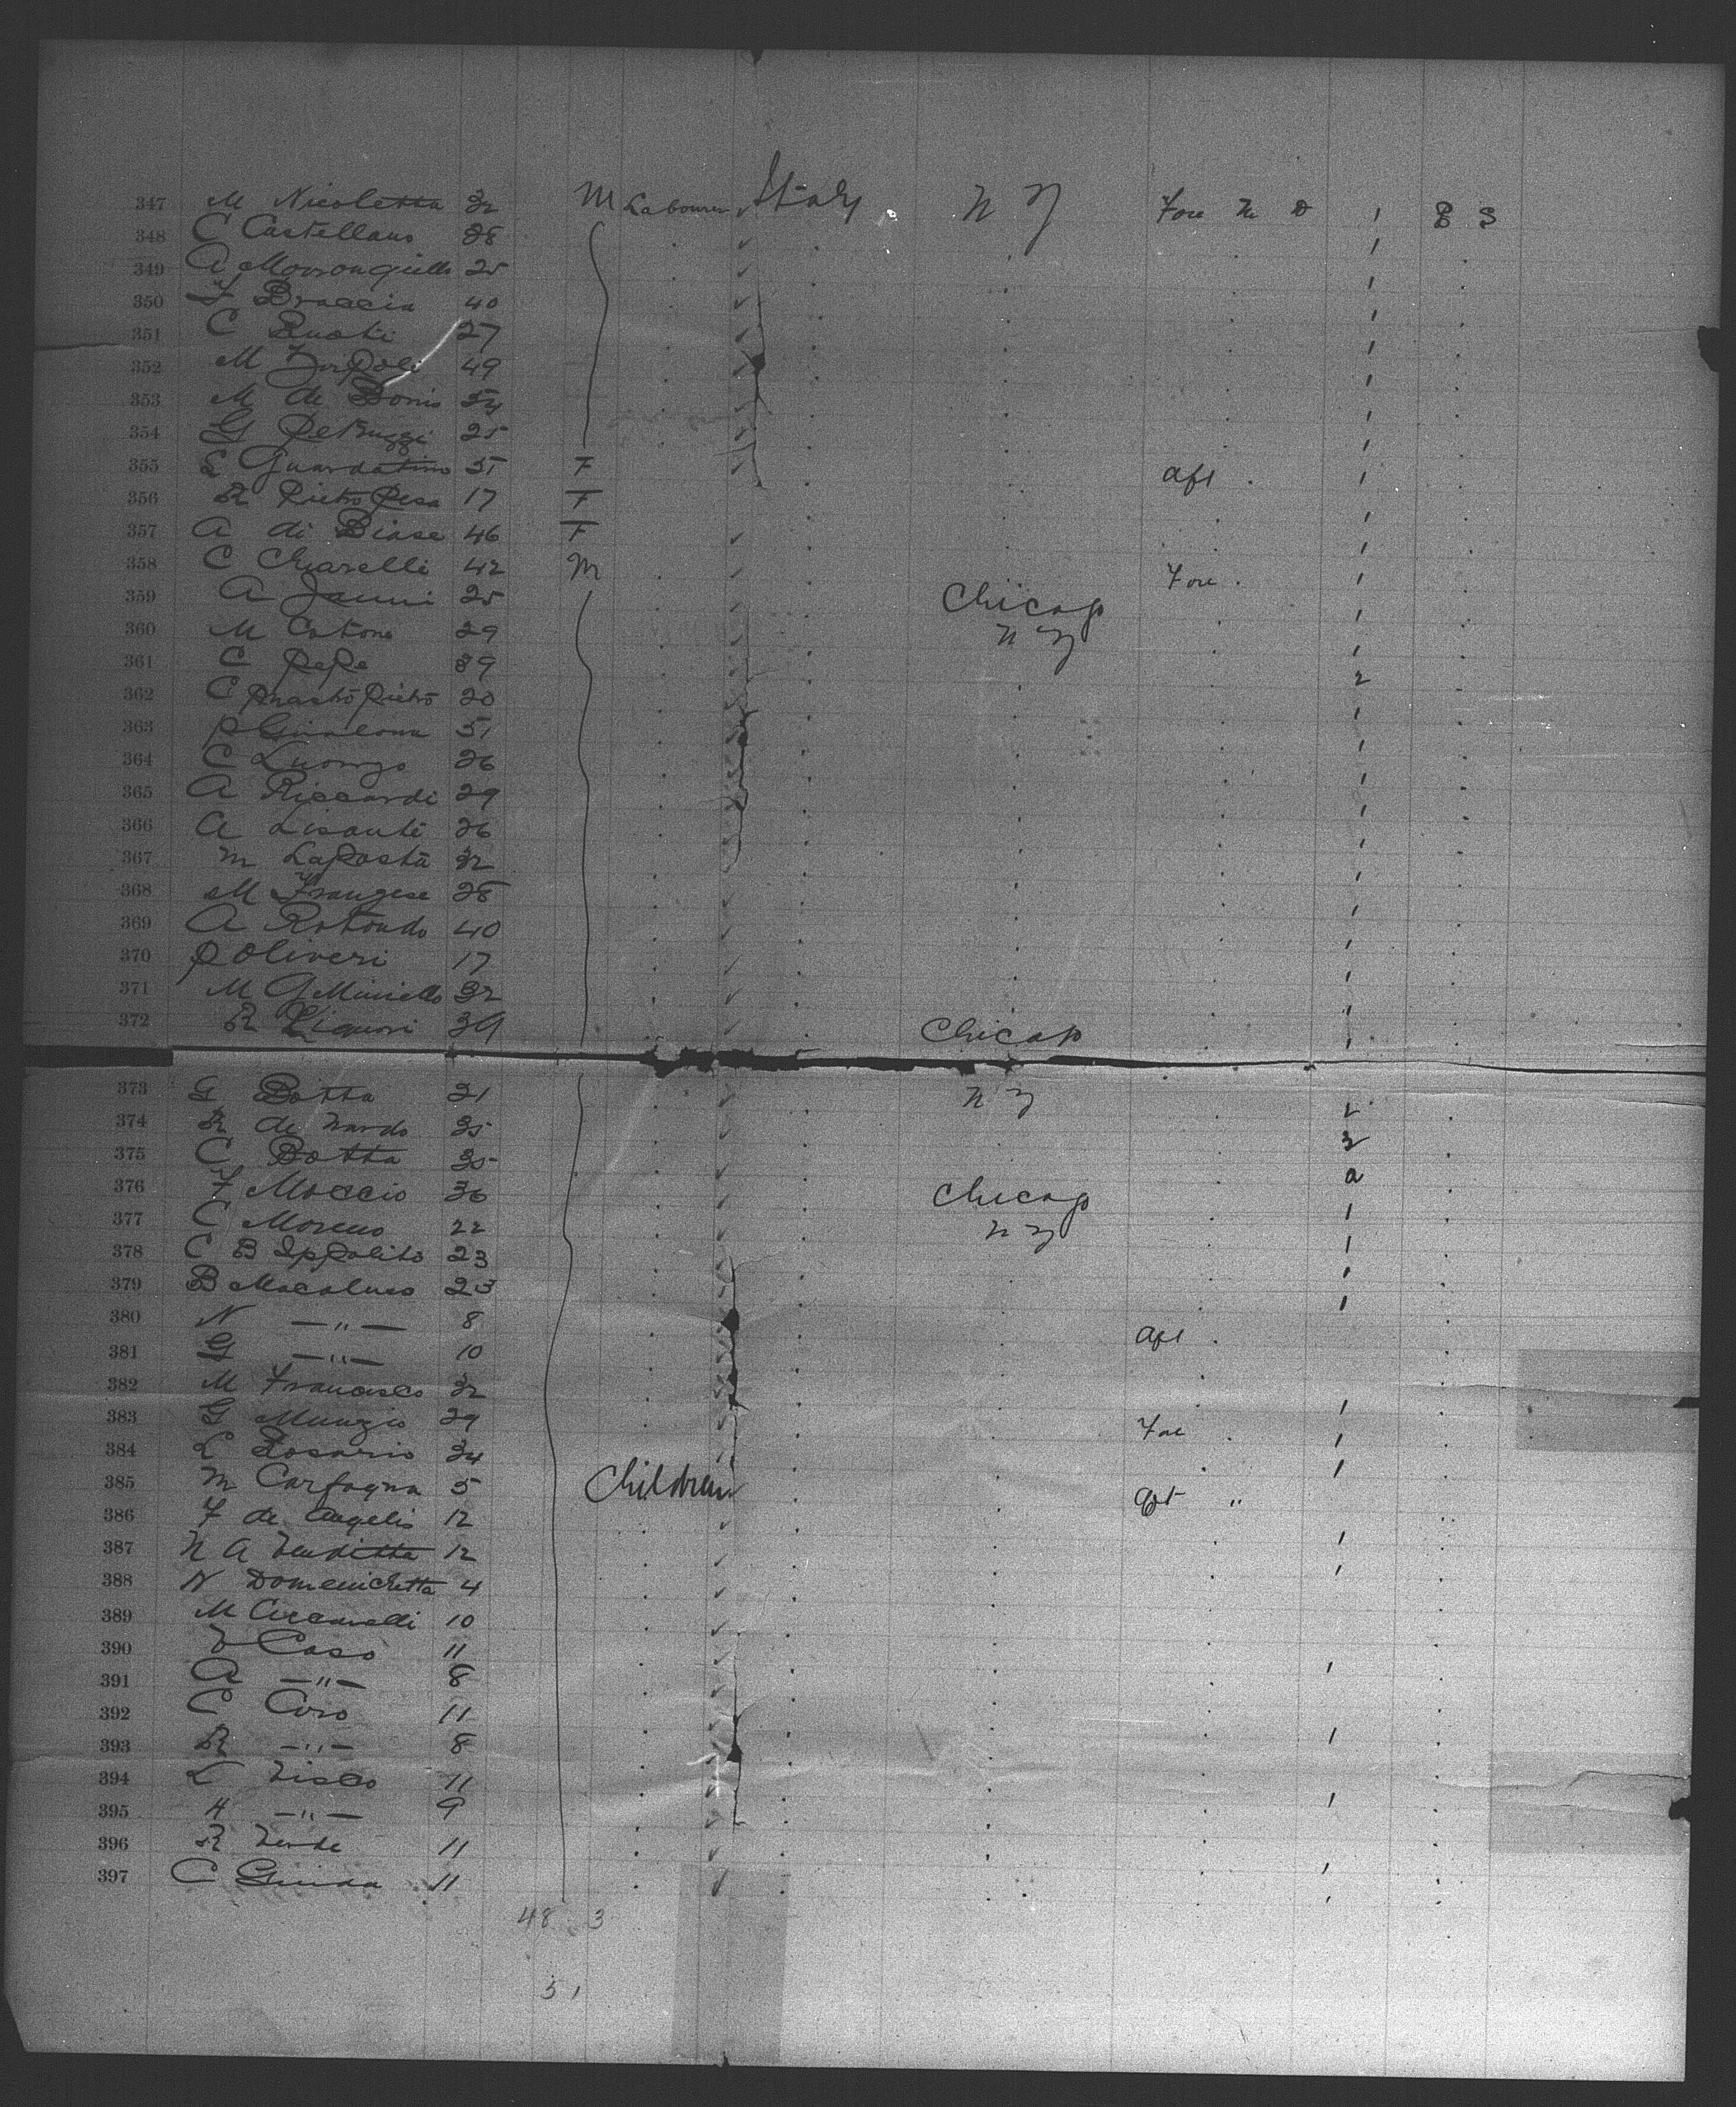 347 M Nicoletta 32 M Labourer Italy N Y Fore M D 1 B S
348 C Castellano 28 1
349 A 25 1
350 F Braccia 40 1
351 C Buoti 27 1
352 M 49 1
353 M de Bonis 34 1
354 G Petruzzi 25 1
355 Guardatino F Aft 1
356 R Pietro Pesa 17 F 1
357 A di Biase 46 F 1
358 C Chiarelli 42 M Fore 1
359 A Janni 25 Chicago 1
360 M Catone 29 N Y 1
361 C Pepe 39 2
362 C Mastro Pietro 20 1
363 P 51 1
364 C Luongo 26 1
365 A Riccardi 29 1
366 A Lisanti 26 1
367 M LaPosta 32 1
368 M Franzese 28 1
369 A Rotondo 40 1
370 P Oliveri 17 1
371 M 32 1
372 R Liguori 39 Chicago 1
373 G Botta 21 N Y
374 R de Nardo 35
375 C Botta 35 2
376 F Moccio 36 Chicago 1
377 C Moreno 22 N Y 1
378 C B Ippolito 23 1
379 B Macaluso 23 1
380 N — " — 8 Aft
381 G — " — 10
382 M Francisco 32 1
383 G Munzio 29 Fore 1
384 L Rosario 34 1
385 M Carfagna 5 Children Aft "
386 F de Angelis 12 1
387 N A Venditta 12 1
388 N Domenichetta 4
389 M Ciccarelli 10
390 V Caso 11 1
391 A — " — 8
392 C Coro 11 1
393 R — " — 8
394 L Visco 11 1
395 H — " — 9
396 R Verde 11 1
397 C Guida 11
48 3
51